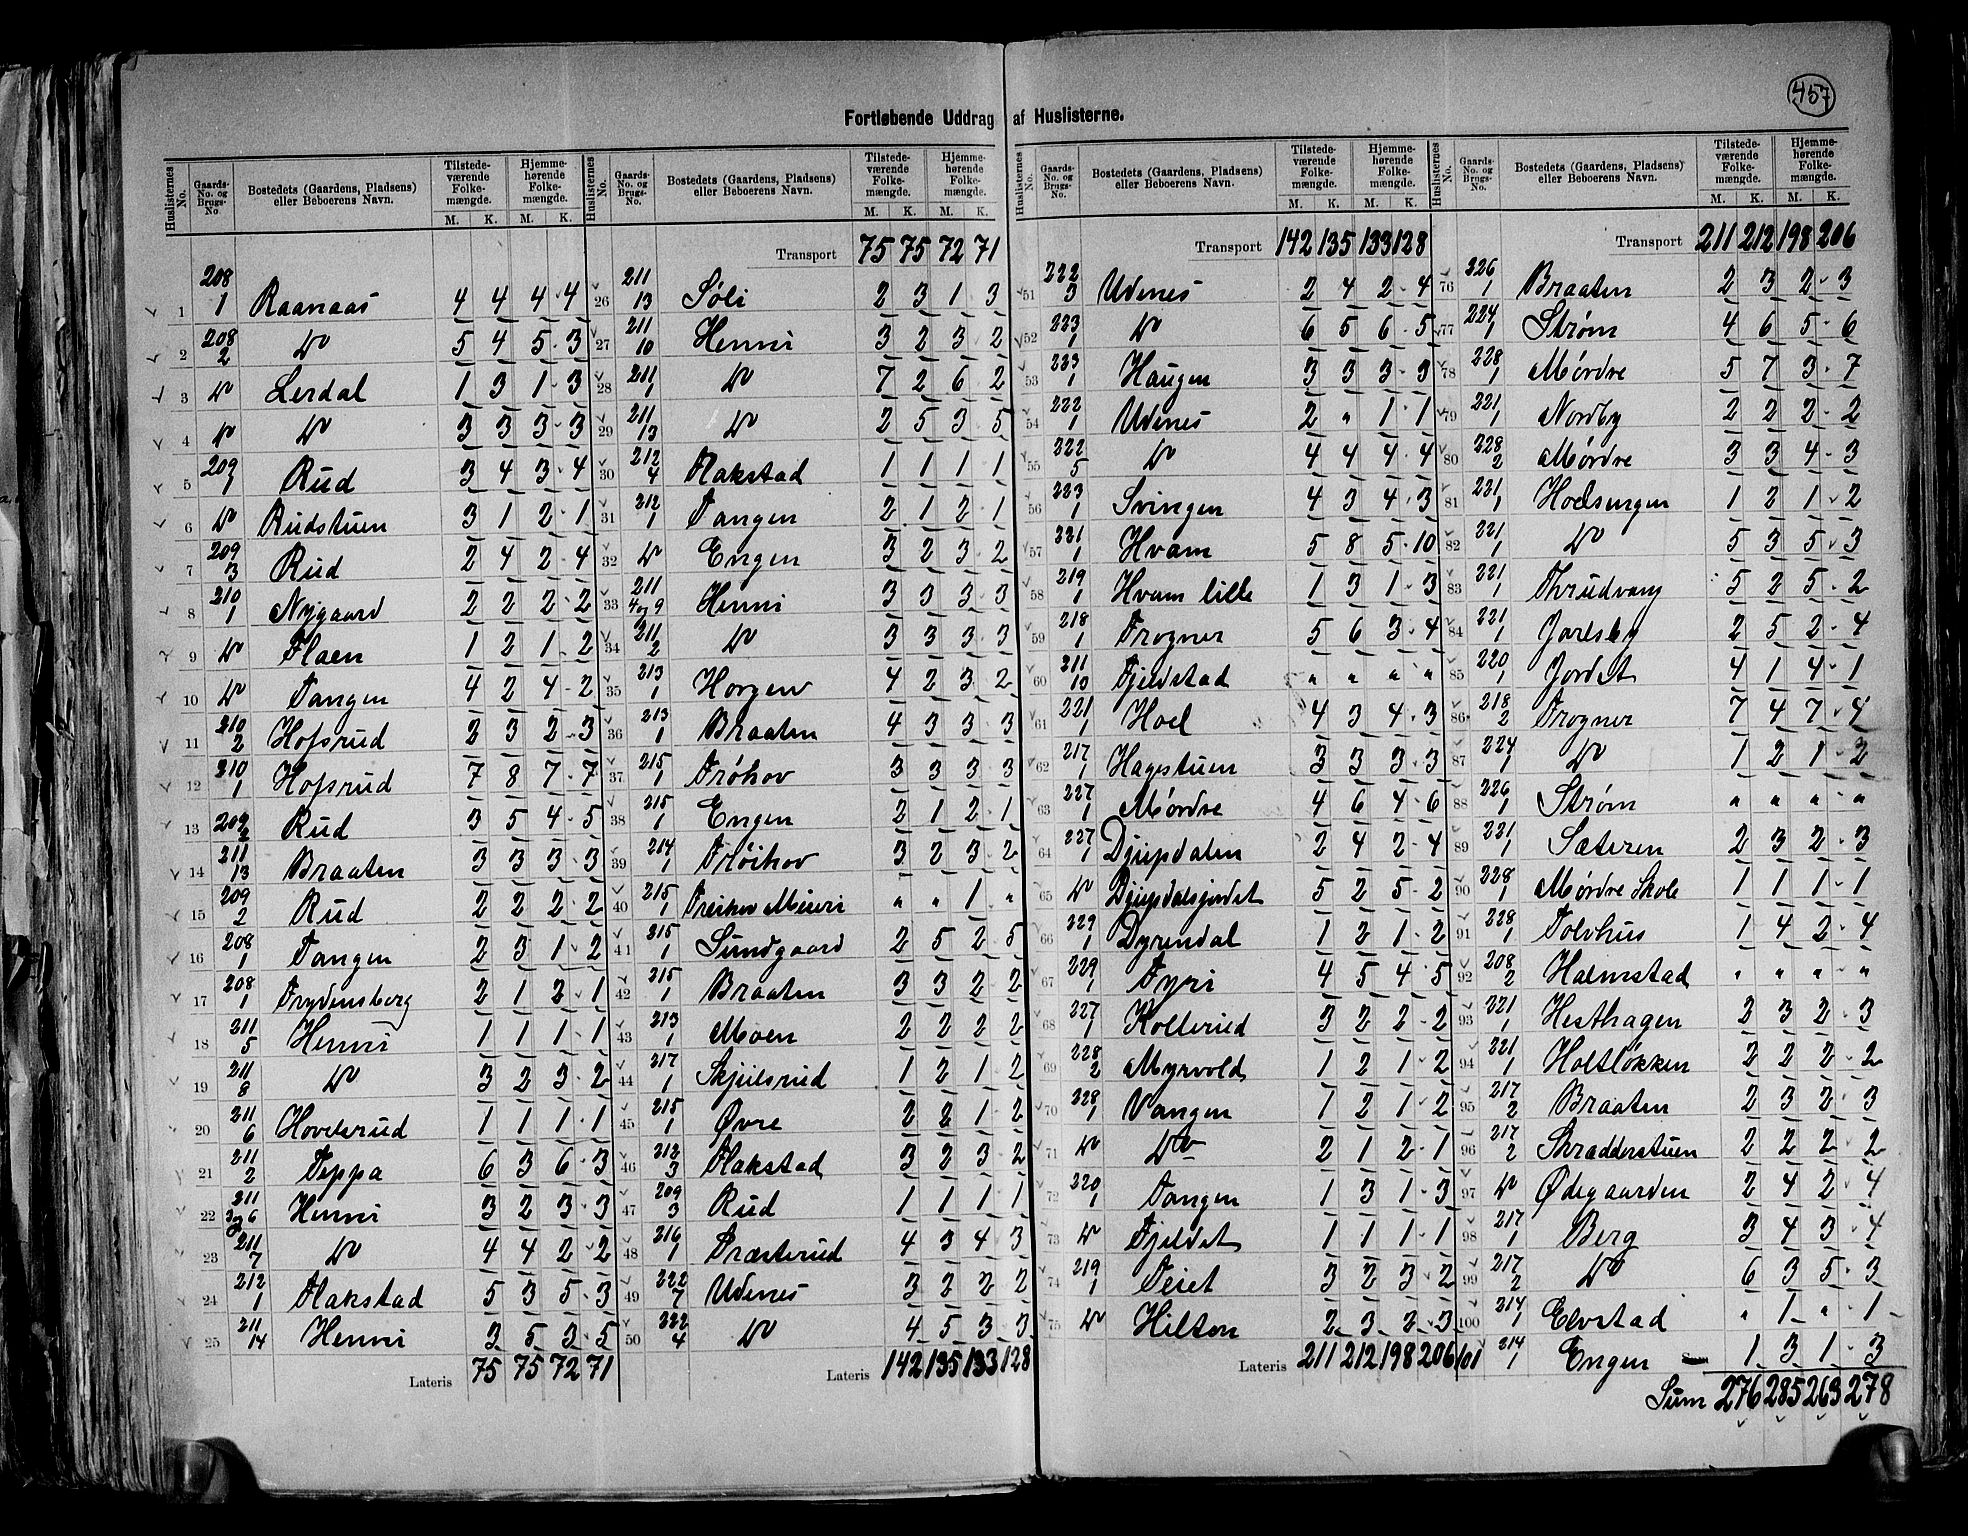 457
Fortløbende Uddrag af Huslisterne.
Huslisternes No. Gaards-No. og Brugs-No. Bostedets (Gaardens, Pladsens) eller Beboerens Navn. Tilstedeværende Folkemængde. M. K. Hjemmehørende Folkemængde. M. K.
1 208/1 Raanaas 4 4 4 4
2 208/2 Do 5 4 5 3
3 Do Lerdal 1 3 1 3
4 Do Do 3 3 3 3
5 209/1 Rud 3 4 3 4
6 Do Rudstuen 3 1 2 1
7 209/3 Rud 2 4 2 4
8 210/1 Nygaard 2 2 2 2
9 Do Flaen 1 2 1 2
10 Do Tangen 4 2 4 2
11 210/2 Hofsrud 2 3 2 3
12 210/1 Hofsrud 7 8 7 7
13 209/2 Rud 3 5 4 5
14 211/13 Braaten 3 3 3 3
15 209/2 Rud 2 2 2 2
16 208/1 Tangen 2 3 1 2
17 208/1 Frydensberg 2 1 2 1
18 211/5 Henni 1 1 1 1
19 211/8 Do 3 2 3 2
20 211/6 Hovelsrud 1 1 1 1
21 211/2 Teppa 6 3 6 3
22 211/3 og 6 Henni 3 2 3 3
23 211/7 Do 4 4 2 2
24 212/1 Flakstad 5 3 5 3
25 211/14 Henni 3 5 3 5
Lateris 75 75 72 71
Transport 75 75 72 71
26 211/13 Søli 2 3 1 3
27 211/10 Henni 3 2 3 2
28 211/1 Do 7 2 6 2
29 211/13 Do 2 5 3 5
30 212/4 Flakstad 1 1 1 1
31 212/1 Tangen 2 1 2 1
32 Do Engen 3 2 3 2
33 211/4 og 9 Henni 3 3 3 3
34 211/2 Do 3 3 3 3
35 213/1 Horgen 4 2 3 2
36 213/1 Braaten 4 3 3 3
37 215/1 Frøhov 3 3 3 3
38 215/1 Engen 2 1 2 1
39 214/1 Frøihov 3 2 3 2
40 215/1 Freihov Meieri " " 1 "
41 215/1 Sundgaard 2 5 2 5
42 215/1 Braaten 3 3 2 2
43 213/1 Moen 2 2 2 2
44 217/1 Skjulsrud 1 2 1 2
45 215/1 Øvre 2 2 1 2
46 212/3 Flakstad 3 2 3 2
47 209/3 Rud 1 1 1 1
48 216/1 Præsterud 4 3 4 3
49 222/7 Udenes 3 2 2 2
50 222/4 Do 4 5 3 3
Lateris 142 135 133 128
Transport 142 135 133 128
51 222/3 Udenes 2 4 2 4
52 223/1 Do 6 5 6 5
53 223/1 Haugen 3 3 3 3
54 222/1 Udenes 2 " 1 1
55 222/5 Do 4 4 4 4
56 223/1 Svingen 4 3 4 3
57 221/1 Hvam 5 8 5 10
58 219/1 Hvam lille 1 3 1 3
59 218/1 Frogner 5 6 3 4
60 211/10 Fjeldstad " " " "
61 221/1 Hoel 4 3 4 3
62 217/1 Hagestuen 3 3 3 3
63 227/1 Mørdre 4 6 4 6
64 227/1 Djupdalen 2 4 2 4
65 Do Djupdalsjordet 5 2 5 2
66 229/1 Dyrendal 1 2 1 2
67 229/1 Fyri 4 5 4 5
68 227/1 Kolterud 3 2 2 2
69 228/2 Myrvold 1 2 1 2
70 228/1 Vangen 1 2 1 2
71 Do Do 2 1 2 1
72 220/1 Tangen 1 3 1 3
73 Do Fjeldet 1 1 1 1
74 219/1 Teiet 3 2 3 2
75 Do Hilton 2 3 2 3
Lateris 211 212 198 206
Transport 211 212 198 206
76 226/1 Braaten 2 3 2 3
77 224/1 Strøm 4 6 5 6
78 228/1 Mørdre 5 7 3 7
79 221/1 Nordby 2 2 2 2
80 228/2 Mørdre 3 3 4 3
81 221/1 Hoelsengen 1 2 1 2
82 221/1 Do 5 3 5 3
83 221/1 Thrudvang 5 2 5 2
84 221/1 Jarlsby 2 5 2 4
85 220/1 Jordet 4 1 4 1
86 218/2 Frogner 7 4 7 4
87 224/1 Do 1 2 1 2
88 226/1 Strøm " " " "
89 221/1 Sæteren 2 3 2 3
90 228/1 Mørdre Skole 1 1 1 1
91 228/1 Tolvhus 1 4 2 4
92 208/2 Halmstad " " " "
93 221/1 Hesthagen 2 3 2 3
94 221/1 Holtløkken 2 2 2 2
95 217/2 Braaten 2 3 2 3
96 217/2 Skradderstuen 2 2 2 2
97 Do Ødegaarden 2 4 2 4
98 217/1 Berg 3 4 3 4
99 217/2 Do 6 3 5 3
100 214/1 Elvstad " 1 " 1
101 214/1 Engen 1 3 1 3
Sum 276 285 263 278